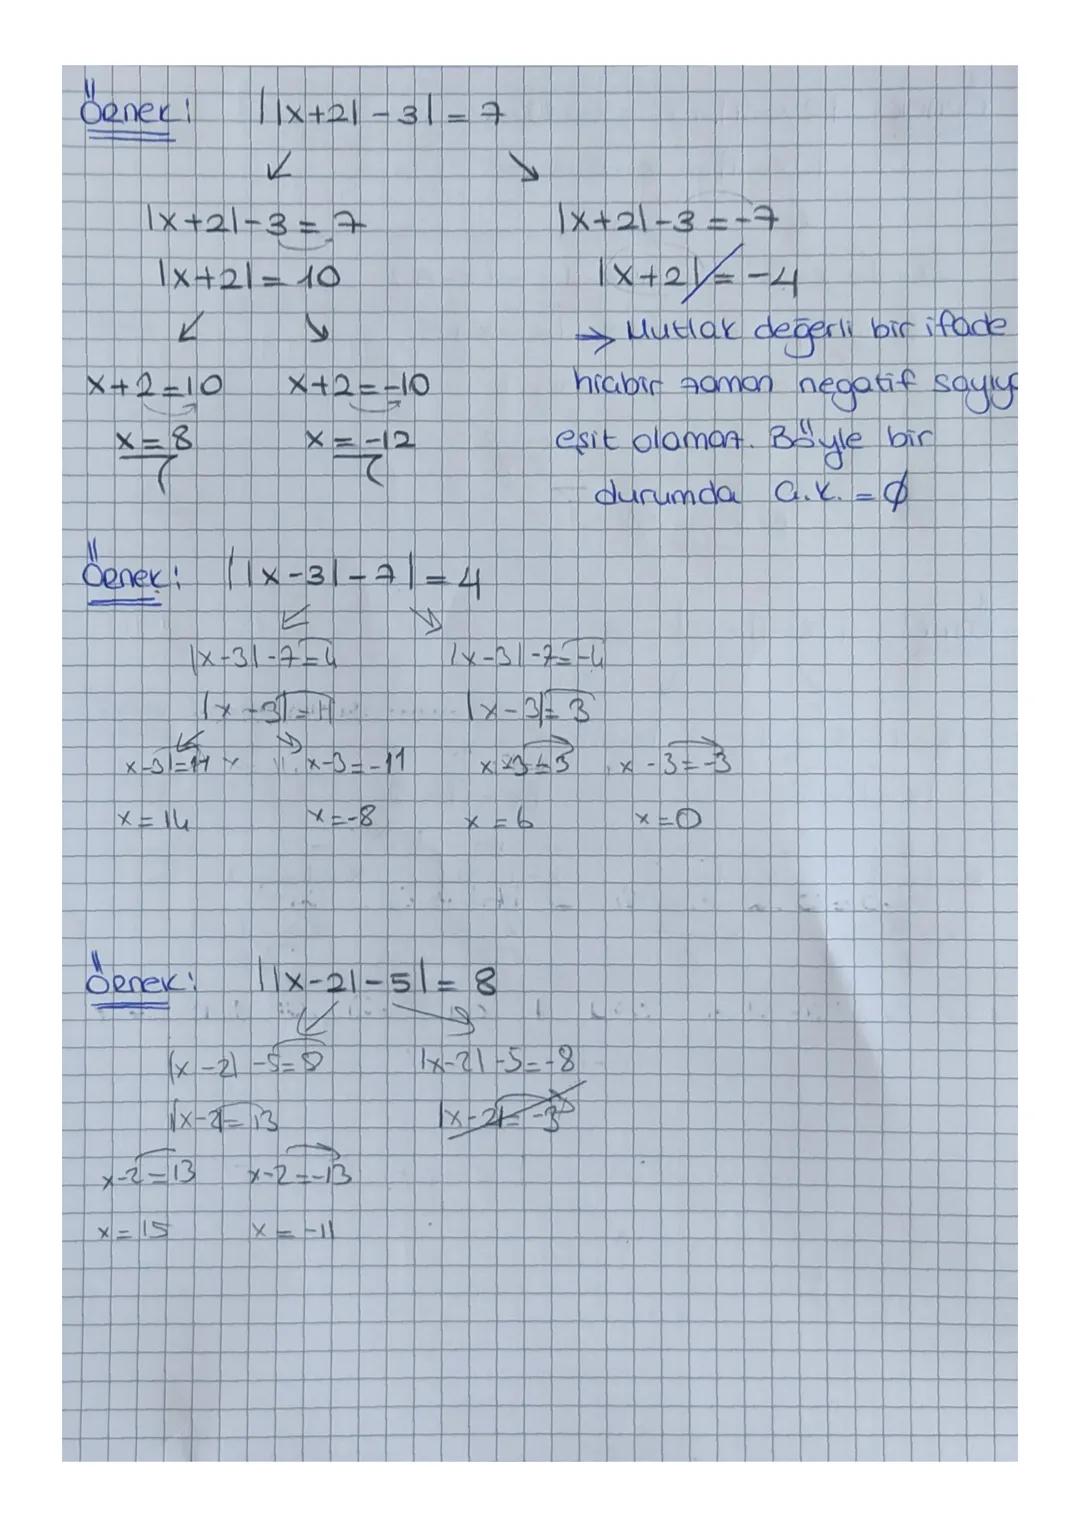 Örnek: ||x+2|-3|=7
|x+2|-3=7 |x+2|-3=-7
|x+2|=10 |x+2|=-4
→ Mutlak değerli bir ifade
x+2=10 x+2=-10 hiçbir zaman negatif sayıy
x=8 x=-12 eşit olamaz. Böyle bir
durumda Ç.K.=∅
Örnek: ||x-3|-7|=4
|x-3|-7=4 |x-3|-7=-4
|x-3|=11 |x-3|=3
x-3=11 x-3=-11 x-3=3 x-3=-3
x=14 x=-8 x=6 x=0
Örnek: ||x-2|-5|=8
|x-2|-5=8 |x-2|-5=-8
|x-2|=13 |x-2|=-3
x-2=13 x-2=-13
x=15 x=-11